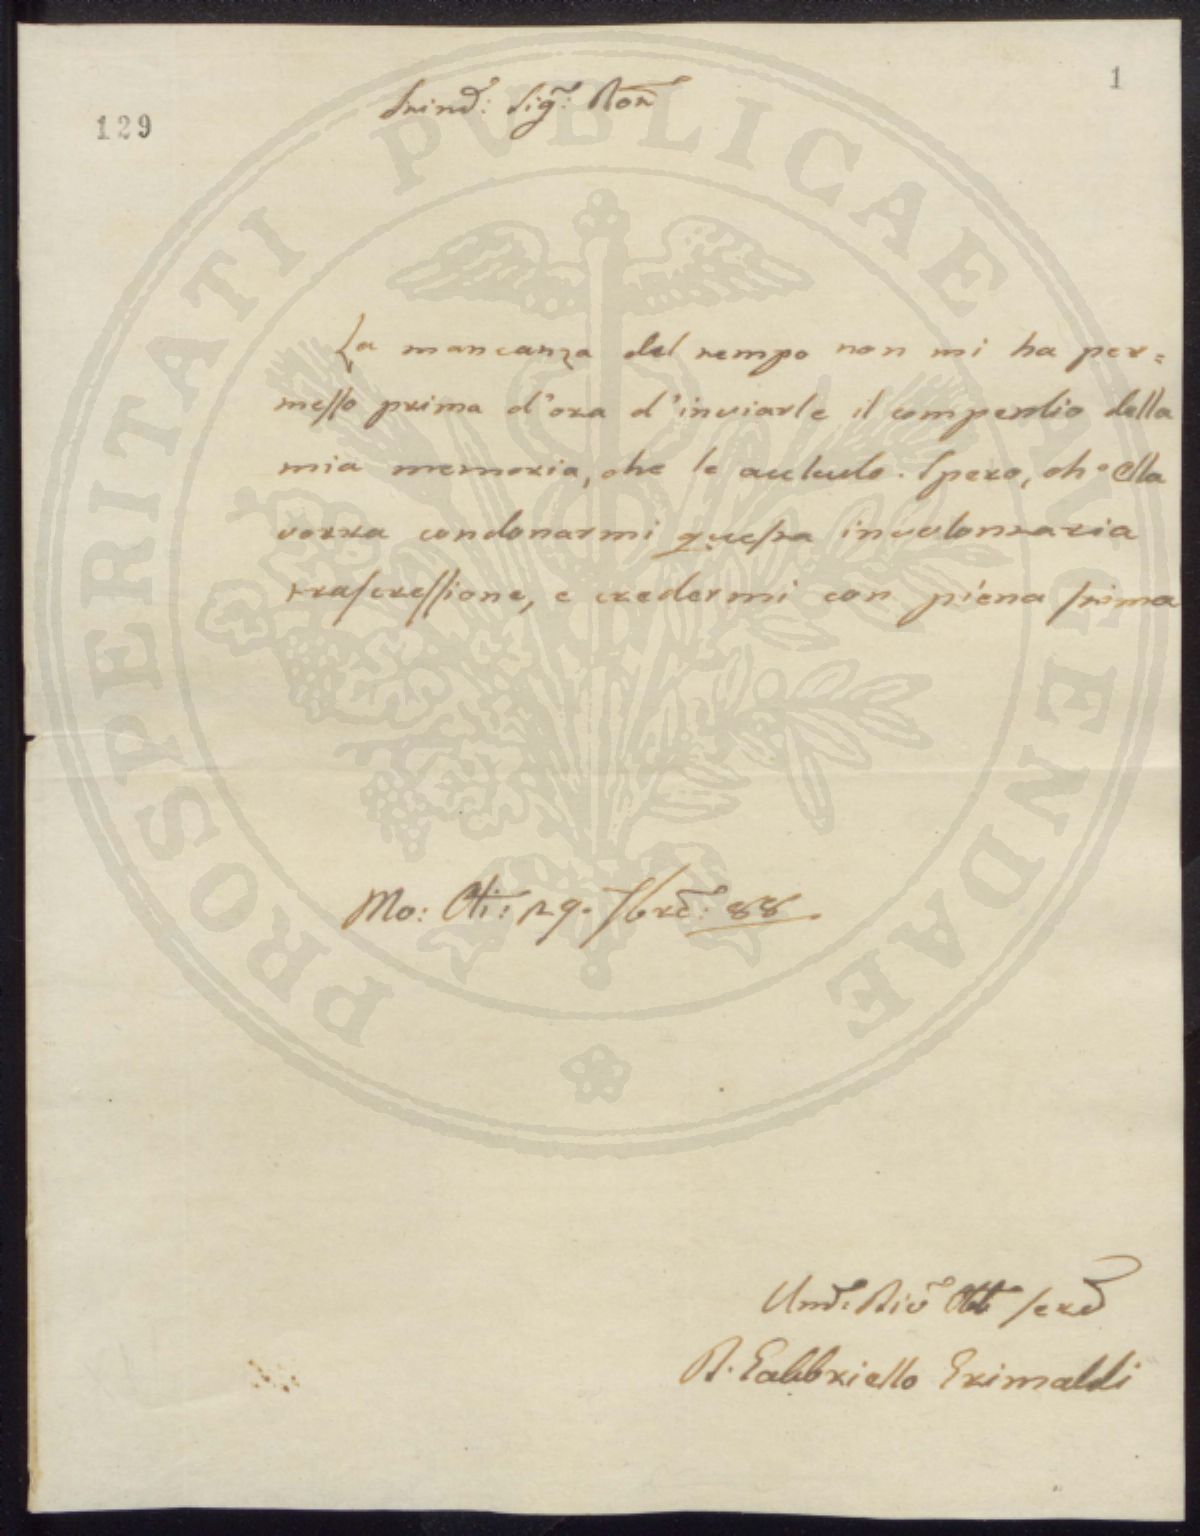 1
129
Stimd: Sig: Pron
La mancanza del tempo non mi ha per=
messo prima d'ora d'inviarle il compendio della
mia memoria, che le accludo. Spero, ch'Ella
vorra condonarmi questa involontaria
trascressione, e credermi con piena stima
Mo: Oti: 29. 7bre: 88.
Umd: Div Obb serd
P. Gabbriello Grimaldi
PROSPERITATI PUBLICAE AUGENDAE